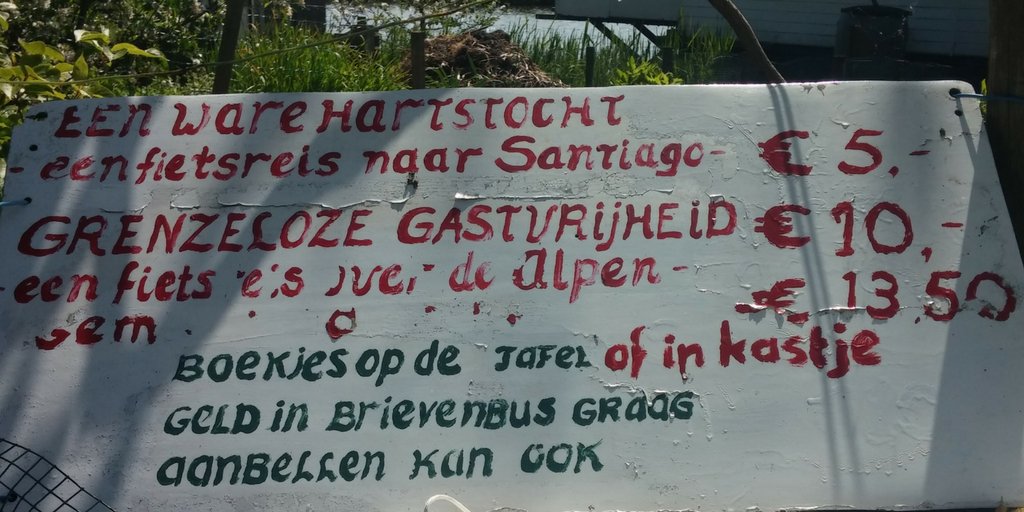 EEN WARE HARTSTOCHT
- een fietsreis naar Santiago - € 5,-
GRENZELOZE GASTVRIJHEID € 10,-
- een fiets de Alpen -
€ 13,50
BOEKJES OP DE TAFEL of in kastje
GELD in BRIEVENBUS GRAAG
AANBELLEN KAN OOK